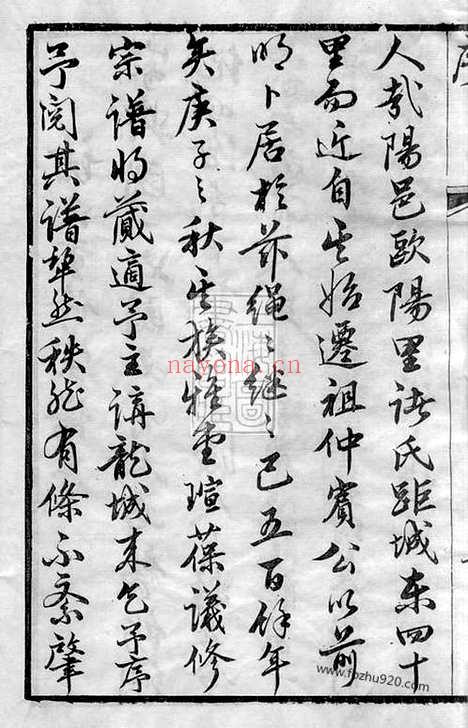 人哉陽邑歐陽里諸氏距城東四十
里而近自其始遷祖仲賓公以前
明卜居於茲繩〻繼〻已五百餘年
矣庚子之秋其族雅重瑄葆議修
宗譜將蕆適予主講龍城來乞予序
予閱其譜犂然秩然有條不紊肇
nayona.cn
www.fozhu920.com